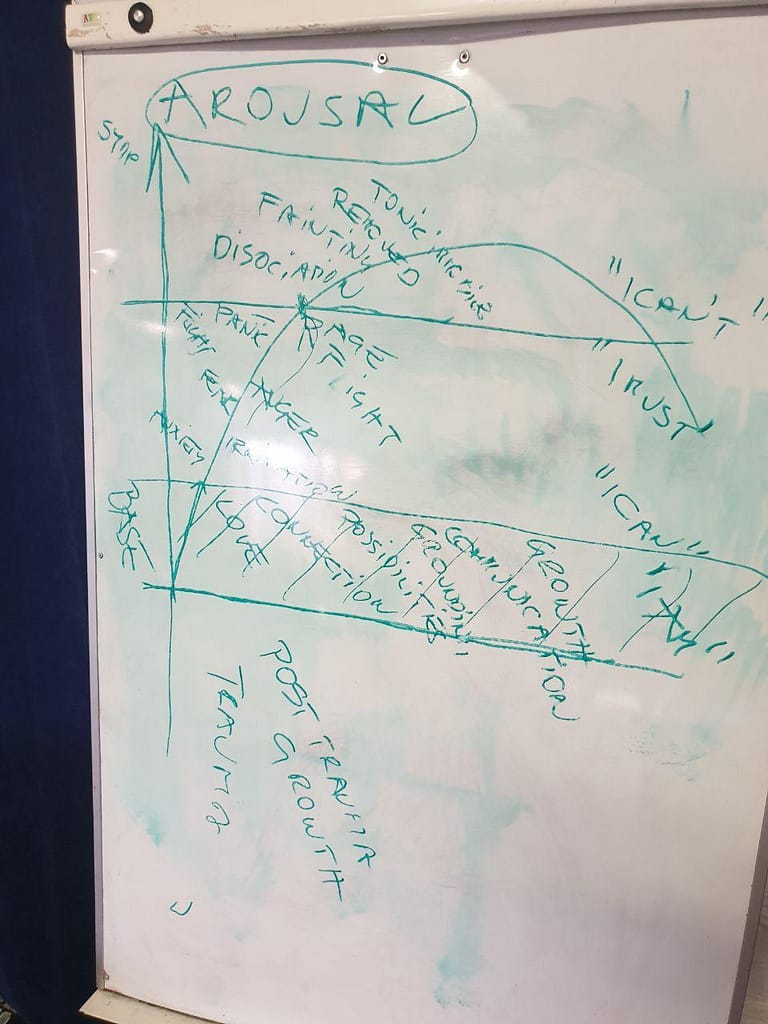 AROUSAL
SYMP
TONIC
REMOVED
FAINTING
DISOCIATION
"I CAN'T"
PANIC
RAGE
FLIGHT
FEAR
ANGER
"I RUST
ANXIETY
IRRITATION
"I CAN"
BASE
LOVE
CONNECTION
POSSIBILITIES
GROUNDING
COMMUNICATION
GROWTH
TRAUMA
POST TRAUMA
GROWTH